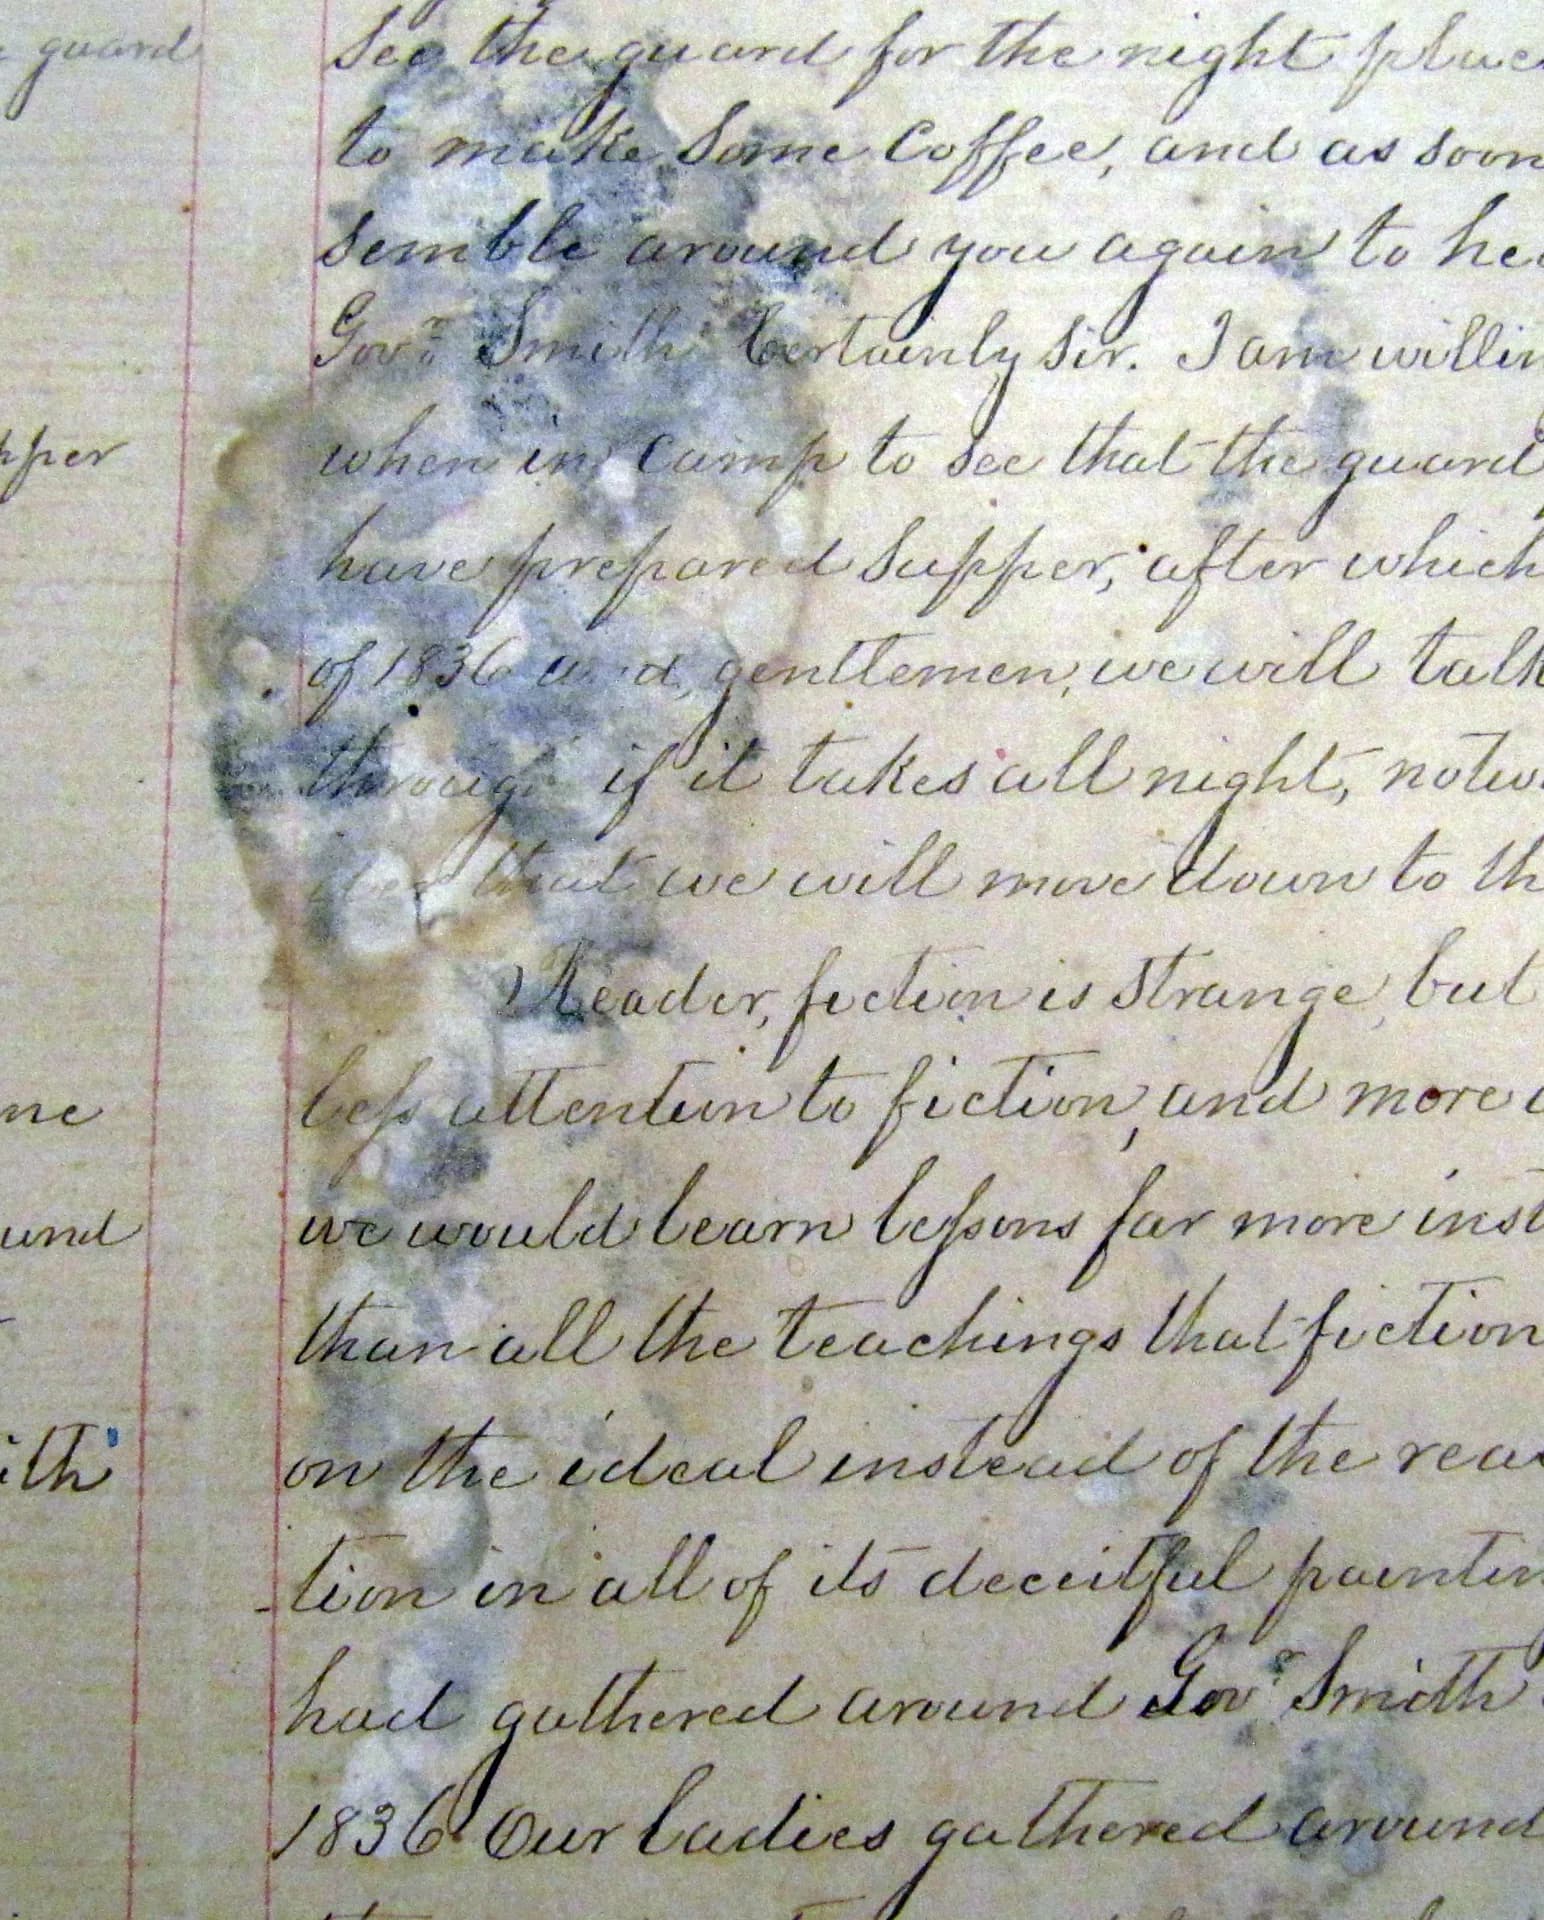 guard
see the guard for the night plac
to make some Coffee, and as soon
semble around you again to hea
Govr Smith Certainly sir. I am willin
when in Camp to see that the guard
pper
have prepared supper, after which
of 1836 and, gentlemen, we will talk
through if it takes all night, notw
that we will move down to th
Reader, fiction is strange, but
leſs attention to fiction, and more
ne
we would learn leſsons far more inst
und
than all the teachings that fiction
on the ideal instead of the rea
ith
tion in all of its deceitful paintin
had gathered around Govr Smith
1836 Our ladies gathered around